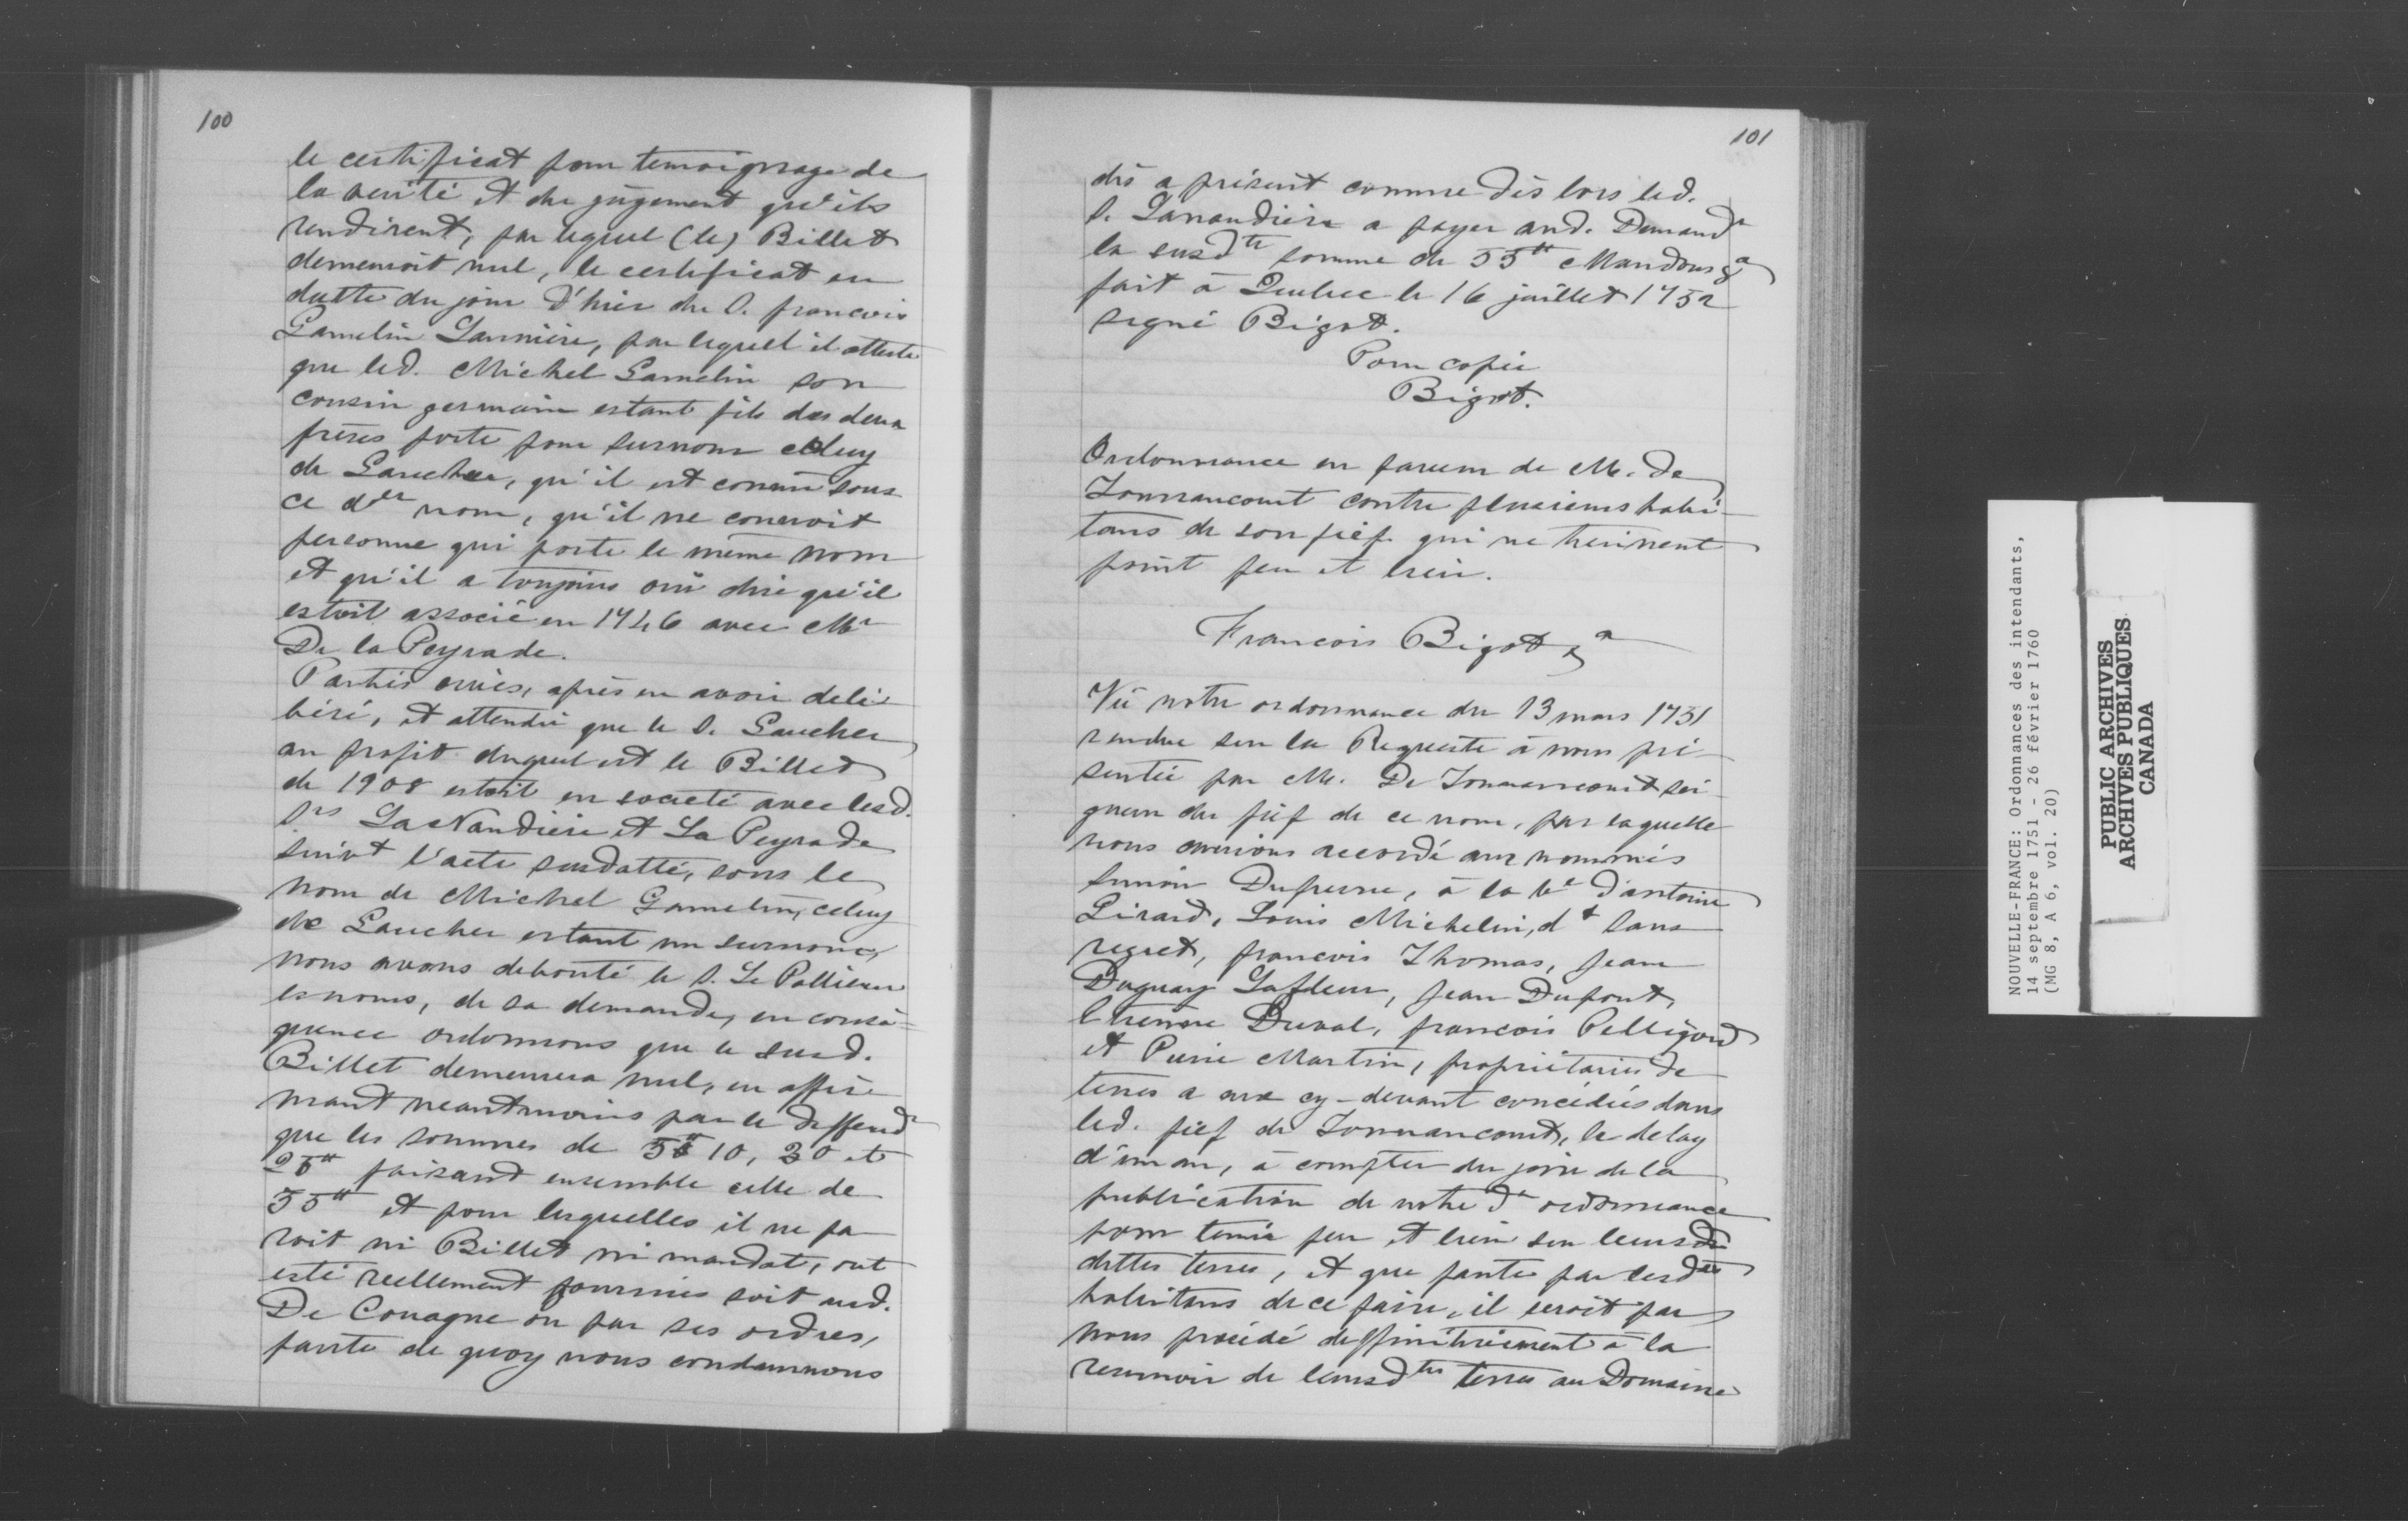 100
le certificat pour temoignage de
la verité et du jugement qu'ils
rendirent, par lequel (le) Billet
demeuroit nul, le certificat en
datte du jour d'hier du S. francois
Gamelin Lannière, par lequel il atteste
que led. Michel Gamelin son
cousin germain estant fils des deux
frères porte pour surnom celuy
de Gaucher, qu'il est connu sous
ce der nom, qu'il ne connoit
personne qui porte le même nom
et qu'il a toujours oui dire qu'il
estoit associé en 1746 avec Mr
De la Peyrade.
Parties ouies, après en avoir deli-
béré, et attendu que le S. Gaucher
au profit duquel est le Billet
de 1908 estoit en societé avec lesd.
Srs LaNaudiere et La Peyrade
suivt l'acte susdatté, sous le
nom de Michel Gamelin, celuy
de Gaucher estant un surnom,
nous avons debouté le S. Le Pallieur
esnoms, de sa demande, en consé-
quence ordonnons que le susd.
Billet demeurera nul, en affir-
mant neantmoins par le deffendr
que les sommes de 10, 30 et
25tt faisant ensemble celle de
55tt et pour lesquelles il ne pa
roit ni Billet ni mandat, ont
esté reellement fournies soit aud.
De Couagne ou par ses ordres,
faute de quoy nous condamnons
101
dès a présent comme dès lors led.
S. Lanaudière a payer aud. Demandr
la susdte somme de 55tt Mandons &a
fait à Quebec le 16 juillet 1752
signé Bigot.
Pour copie
Bigot.
Ordonnance en faveur de M. de
Tonnancourt contre plusieurs habi-
tans de son fief qui ne tiennent
point feu et lieu.
Francois Bigot &a
Vû notre ordonnance du 13 mars 1751
rendue sur la Requeste à nous pré-
sentée par M. De Tonnancourt sei-
gneur du fief de ce nom, par laquelle
nous aurions accordé aux nommés
Simon Dufresne, à la Ve d'antoine
Girard, Louis Michelin, dt Sans
regret, francois Thomas, Jean
Duguay Lafleur, Jean Dupont,
Etienne Duval, francois Pelligord
et Pierre Martin, propriétaires de
terres a eux cy-devant concédées dans
led. fief de Tonnancourt, le delay
d'un an, à compter du jour de la
publication de notre de ordonnance
pour tenir feu et lieu sur leursd
dittes terres, et que faute par lesdts
habitans de ce faire, il seroit par
nous procédé deffinitivement à la
reunion de leursdtes terres au Domaine
NOUVELLE-FRANCE: Ordonnances des intendants,
14 septembre 1751 - 26 février 1760
(MG 8, A 6, vol. 20)
PUBLIC ARCHIVES
ARCHIVES PUBLIQUES
CANADA